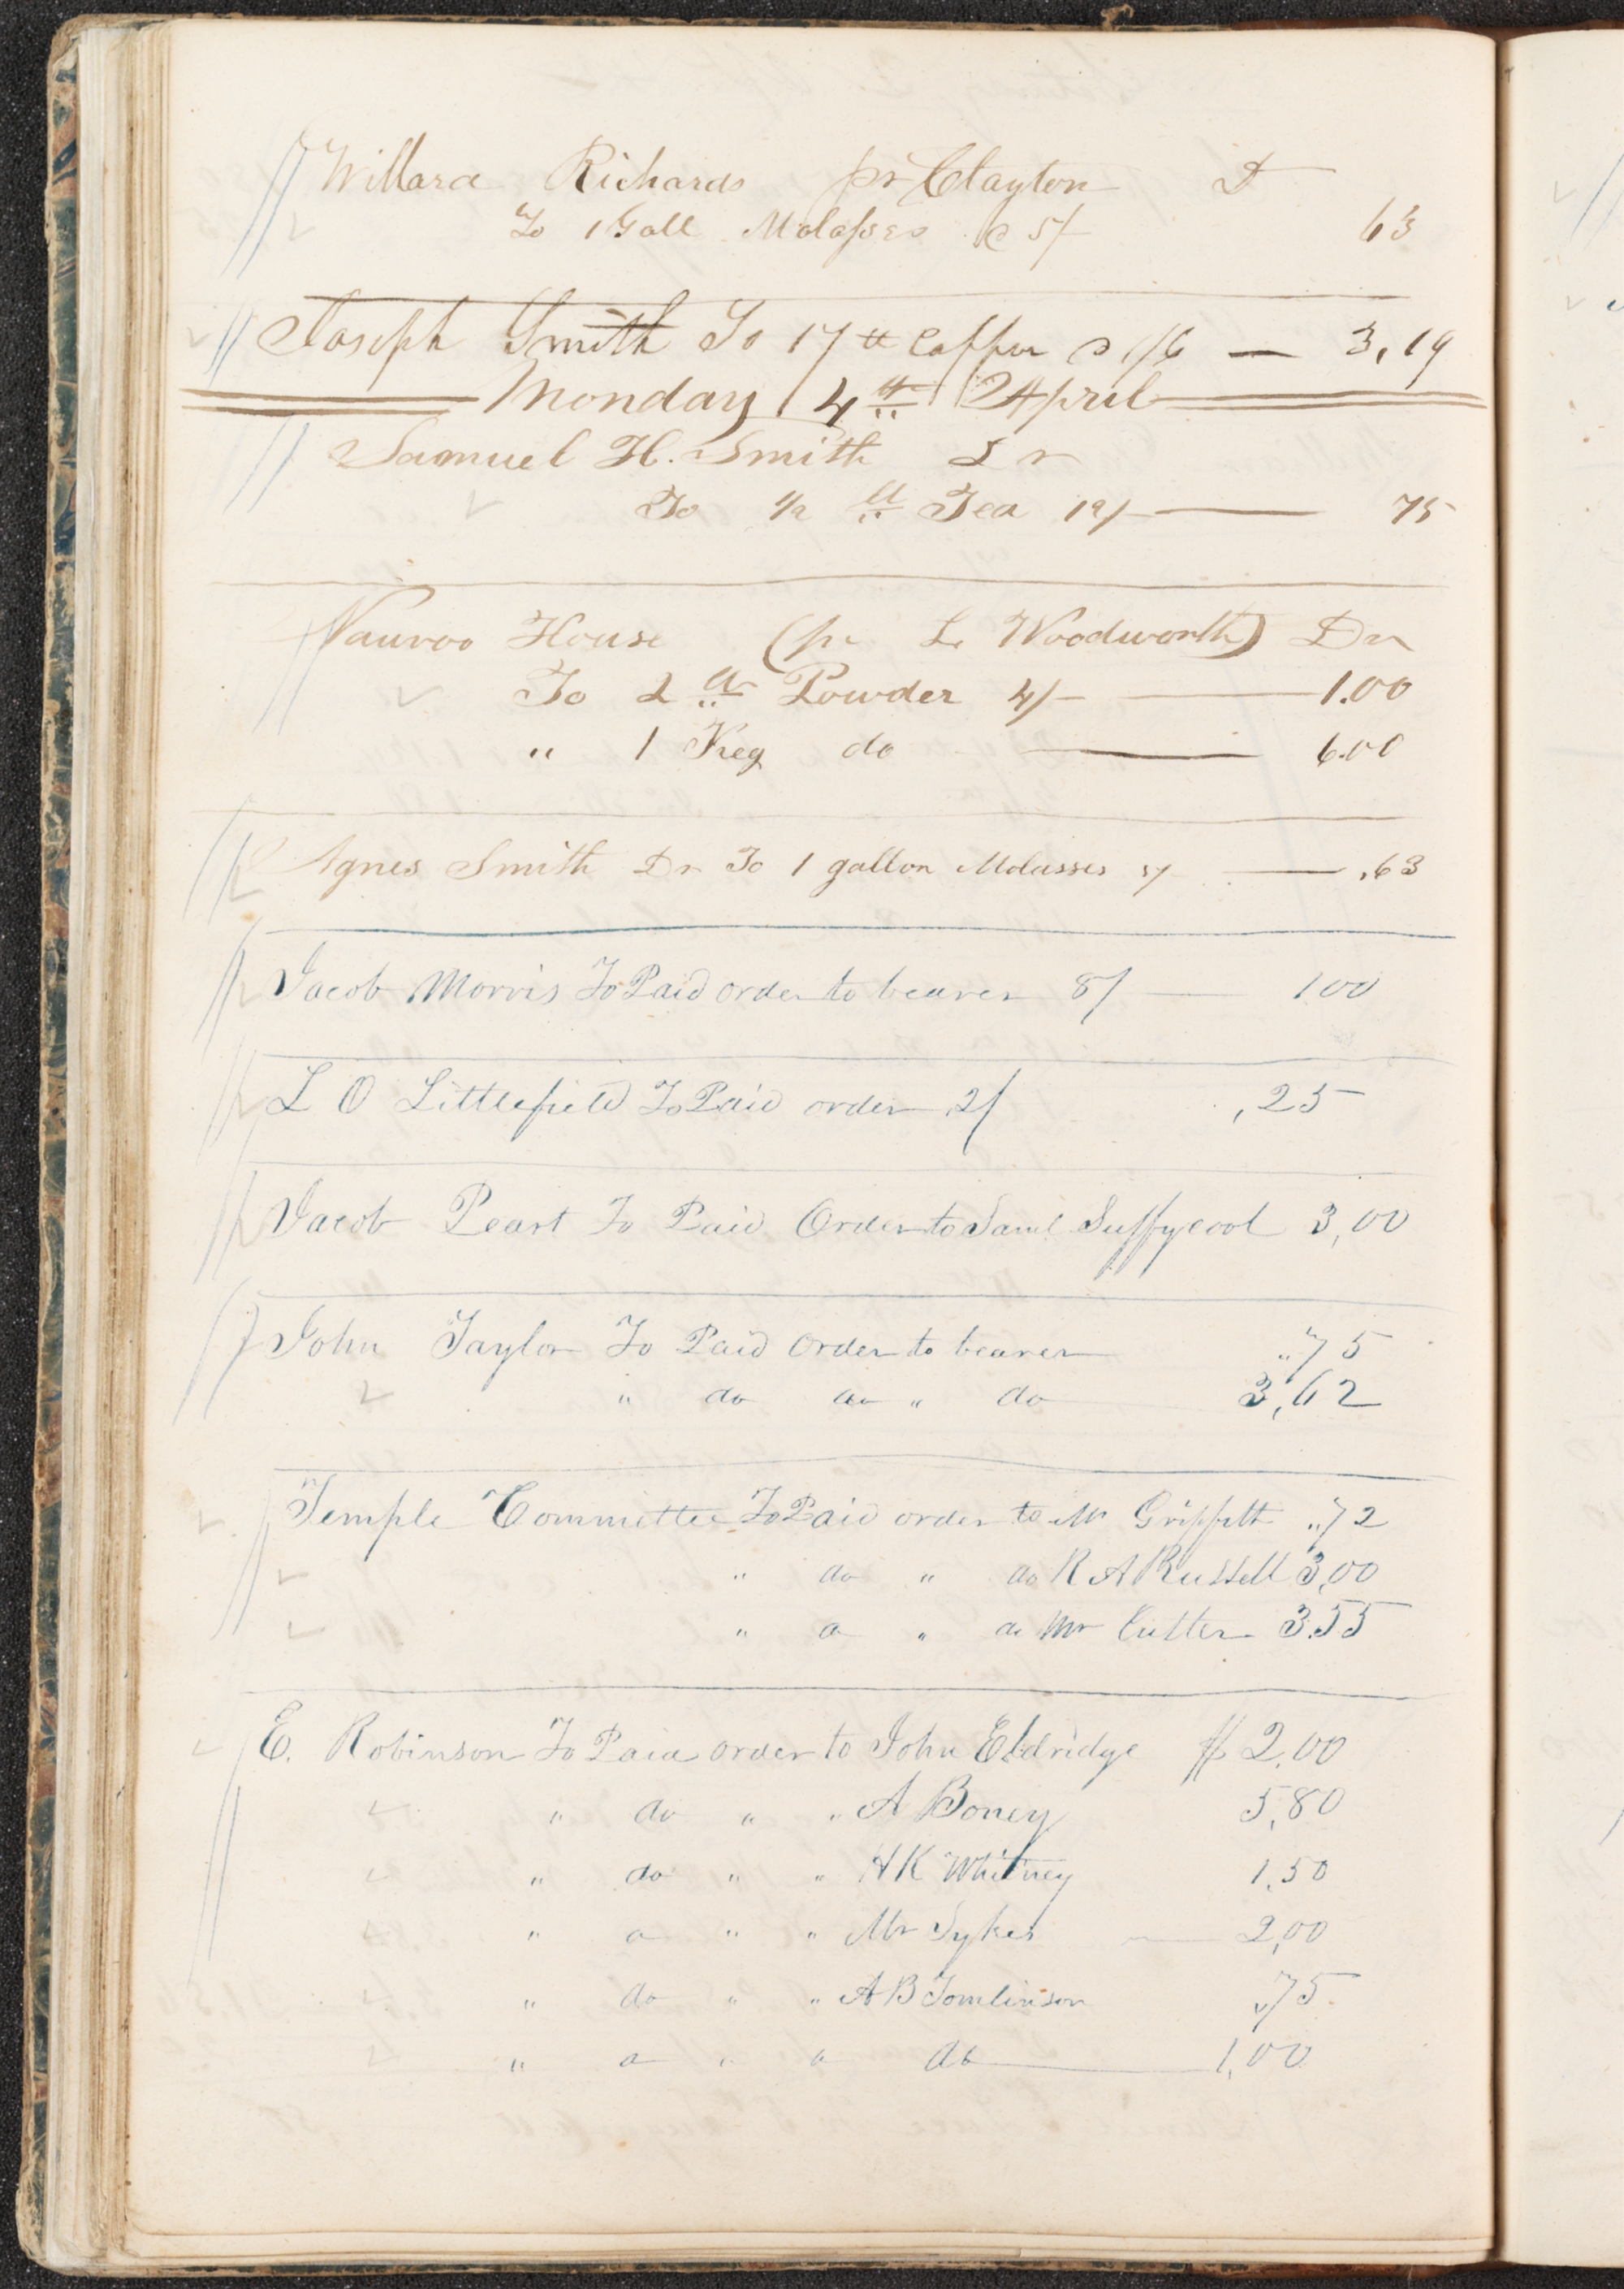 Willard Richards pr Clayton D
To 1 Gall Molasses @ 5/ 63
Joseph Smith To 17 ℔ Coffee @ 1/6 — 3,19
Monday 4th April
Samuel H. Smith Dr
To 1/2 ℔ Tea 12/ — 75
Nauvoo House (pr L. Woodworth) Dr
To 2 ℔ Powder 4/- — 1.00
" 1 Keg do — 6.00
Agnes Smith Dr To 1 gallon Molasses 5/ — .63
Jacob Morris To Paid order to bearer 8/ — 1 00
L O Littlefield To Paid order 2/ ,25
Jacob Peart To Paid Order to Saml Suffycool 3,00
John Taylor To Paid order to bearer "75
" do do " do 3,62
Temple Committee To Paid order to Mr Griffith "72
" do " do R A Russell 3,00
" do " do Mr Cutler 3.55
E. Robinson To Paid order to John Eldridge $ 2.00
" do " " A Boney 5,80
" do " " H K Whitney 1.50
" do " " Mr Sykes — 2,00
" do " " A B Tomlinson ,75
" do " " do — 1,00